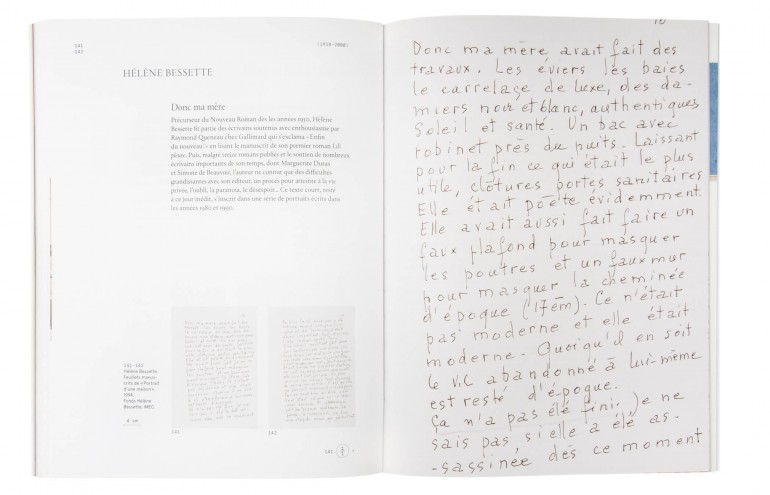 141
143
(1918-2000)
HÉLÈNE BESSETTE
Donc ma mère
Précurseur du Nouveau Roman dès les années 1950, Hélène
Bessette fit partie des écrivains soutenus avec enthousiasme par
Raymond Queneau chez Gallimard qui s'exclama «Enfin
du nouveau!» en lisant le manuscrit de son premier roman Lili
pleure. Puis, malgré treize romans publiés et le soutien de nombreux
écrivains importants de son temps, dont Marguerite Duras
et Simone de Beauvoir, l'auteur ne connut que des difficultés
grandissantes avec son éditeur, un procès pour atteinte à la vie
privée, l'oubli, la paranoïa, le désespoir... Ce texte court, resté
à ce jour inédit, s'inscrit dans une série de portraits écrits dans
les années 1980 et 1990.
141-142
Hélène Bessette
Feuillets manus-
crits de «Portrait
d'une maison»,
Fonds Hélène
Bessette, IMEC.
141
Donc ma mère avait fait des
travaux. Les éviers les baies
le carrelage de luxe, des da-
miers noir et blanc, authentiques
Soleil et santé. Un bac avec
robinet près du puits. Laissant
pour la fin ce qui était le plus
utile, clôtures portes sanitaires
Elle était poète évidemment.
Elle avait aussi fait faire un
faux plafond pour masquer
les poutres et un faux mur
pour masquer la cheminée
d'époque (17èm). Ce n'était
pas moderne et elle était
moderne. Quoiqu'il en soit
le W.C abandonné à lui-même
est resté d'époque.
Ça n'a pas été fini. Je ne
sais pas si elle a été as-
-sassinée dès ce moment